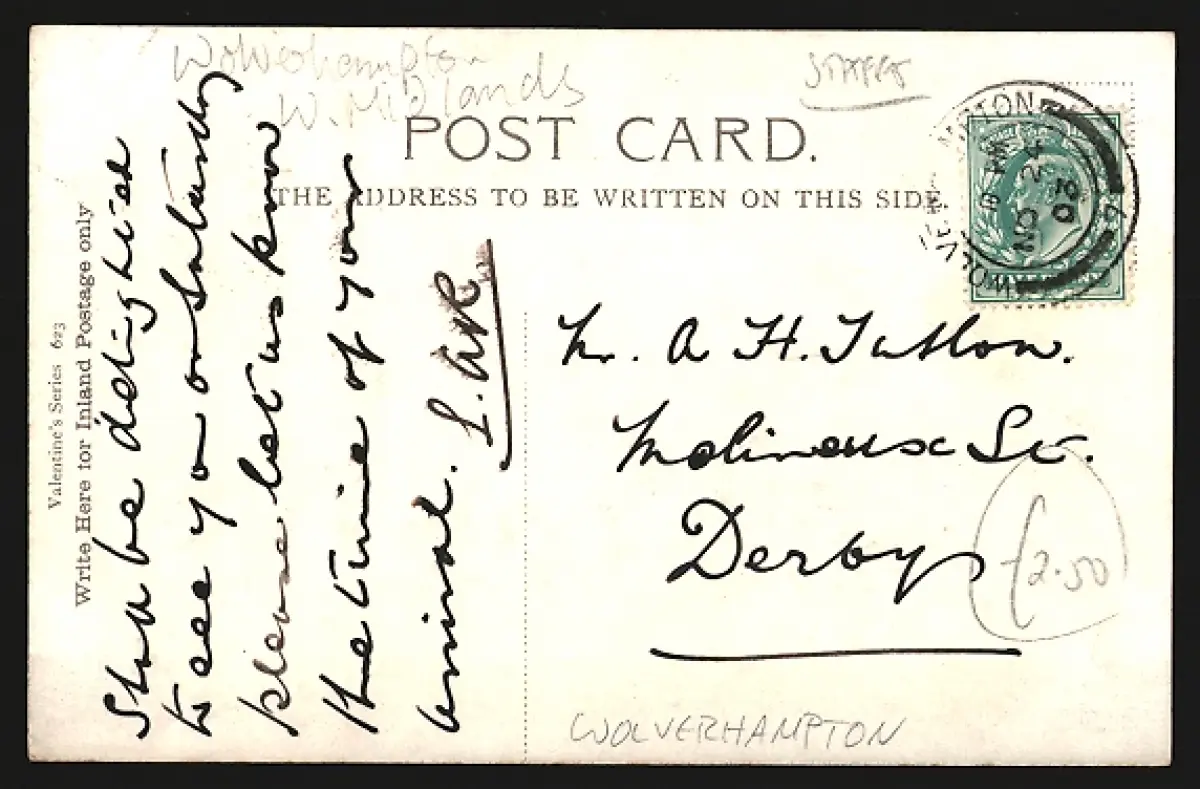 Wolverhampton
W. Midlands
STAFFS
POST CARD.
THE ADDRESS TO BE WRITTEN ON THIS SIDE.
Valentine's Series 623
Write Here for Inland Postage only
Shall be delighted
to see you on Saturday
please let us know
the time of your
arrival. L.
Mr. A H. Tatlow.
Molineux St.
Derby
£2.50
WOLVERHAMPTON
NO 24